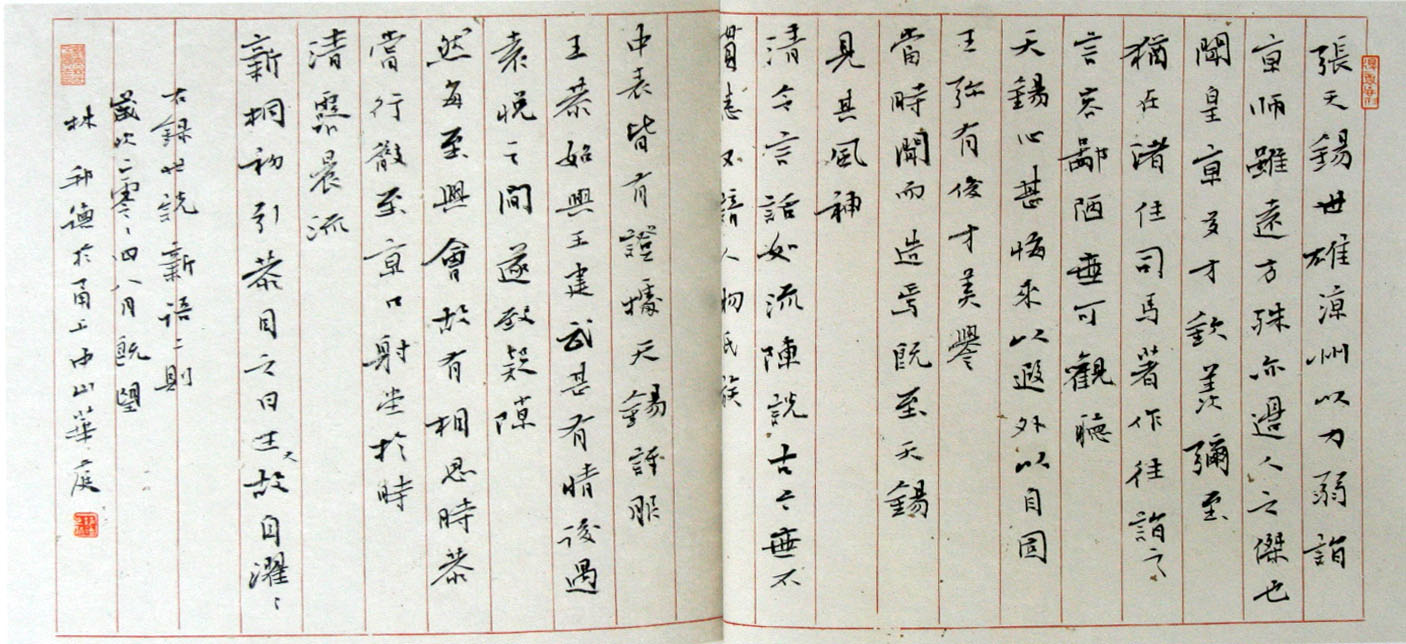 張天錫世雄涼州以力弱詣
京師雖遠方殊亦邊人之傑也
聞皇京多才欽羨彌至
猶在渚住司馬著作往詣之
言容鄙陋無可觀聽
天錫心甚悔來以遐外以自固
王弥有俊才美譽
當時聞而造焉既至天錫
見其風神
清令言話如流陳說古今無不
貫悉又諳人物氏族
中表皆有證據天錫訝服
王恭始與王建武甚有情後遇
袁悅之間遂致疑隙
然每至興會故有相思時恭
嘗行散至京口射堂於時
清露晨流
新桐初引恭目之曰王大故自濯濯
右錄世說新語二則
歲次二零零四八月既望
林邦德於甬上中山華庭